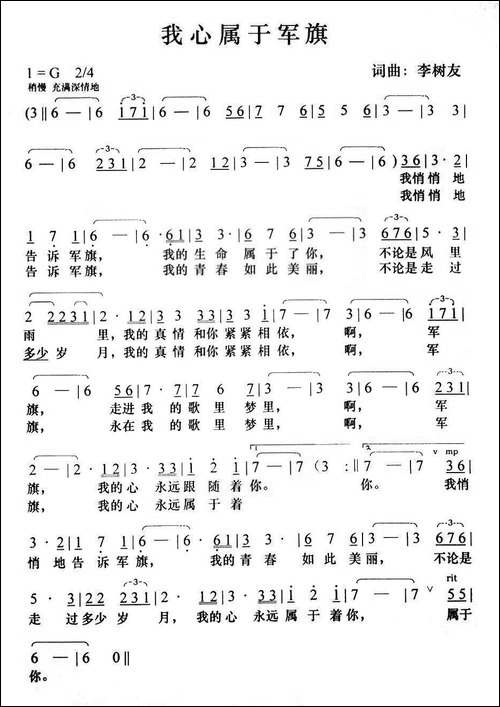 我心属于军旗
1=G 2/4 词曲：李树友
稍慢 充满深情地
(3‖6 — |6 — |171|6 — |6 — |567|567|65|5 6|3 — |3 3|
6 — |6 — |231|2 — |2 — |3 33|3 — |175|6 — |6 — )36|3·2|
我悄悄 地
我悄悄 地
1 7 1|6 — |6 ·61|3 3·|6 5 6|3 — |3 — |676|5·3|
告 诉 军 旗， 我的 生 命 属 于 了 你， 不论是 风 里
告 诉 军 旗， 我的 青 春 如 此 美 丽， 不论是 走 过
2 2231|2·12|3 33|223 3 i|7 — |7 3|6 — |6 171|
雨 里，我的 真 情 和你 紧紧 相 依， 啊， 军
多少 岁 月，我的 真 情 和你 紧紧 相 依， 啊， 军
6 — |6 567|7·7|7 6 7|3 — |3 3|6 — |6 231|
旗， 走进 我 的 歌 里 梦 里， 啊， 军
旗， 永在 我 的 歌 里 梦 里， 啊， 军
2 — |2·12|3·3 33|i 2 i|7 — |7 (3 :‖7 — |7 36|
mp
旗， 我的 心 永远 跟 随 着 你。 你。 我悄
旗， 我的 心 永远 属 于 着
3·2|121|6 — |6·61|3 3·|6 5 6|3 — |3 676|
悄 地 告诉 军 旗， 我的 青 春 如 此 美 丽， 不论是
rit
5·3|22 231|2·12|3·3 33|i 2 i 2|7 — |7 55|
走 过 多少 岁 月，我的 心 永远 属 于 着 你， 属于
6 — |6 0‖
你。